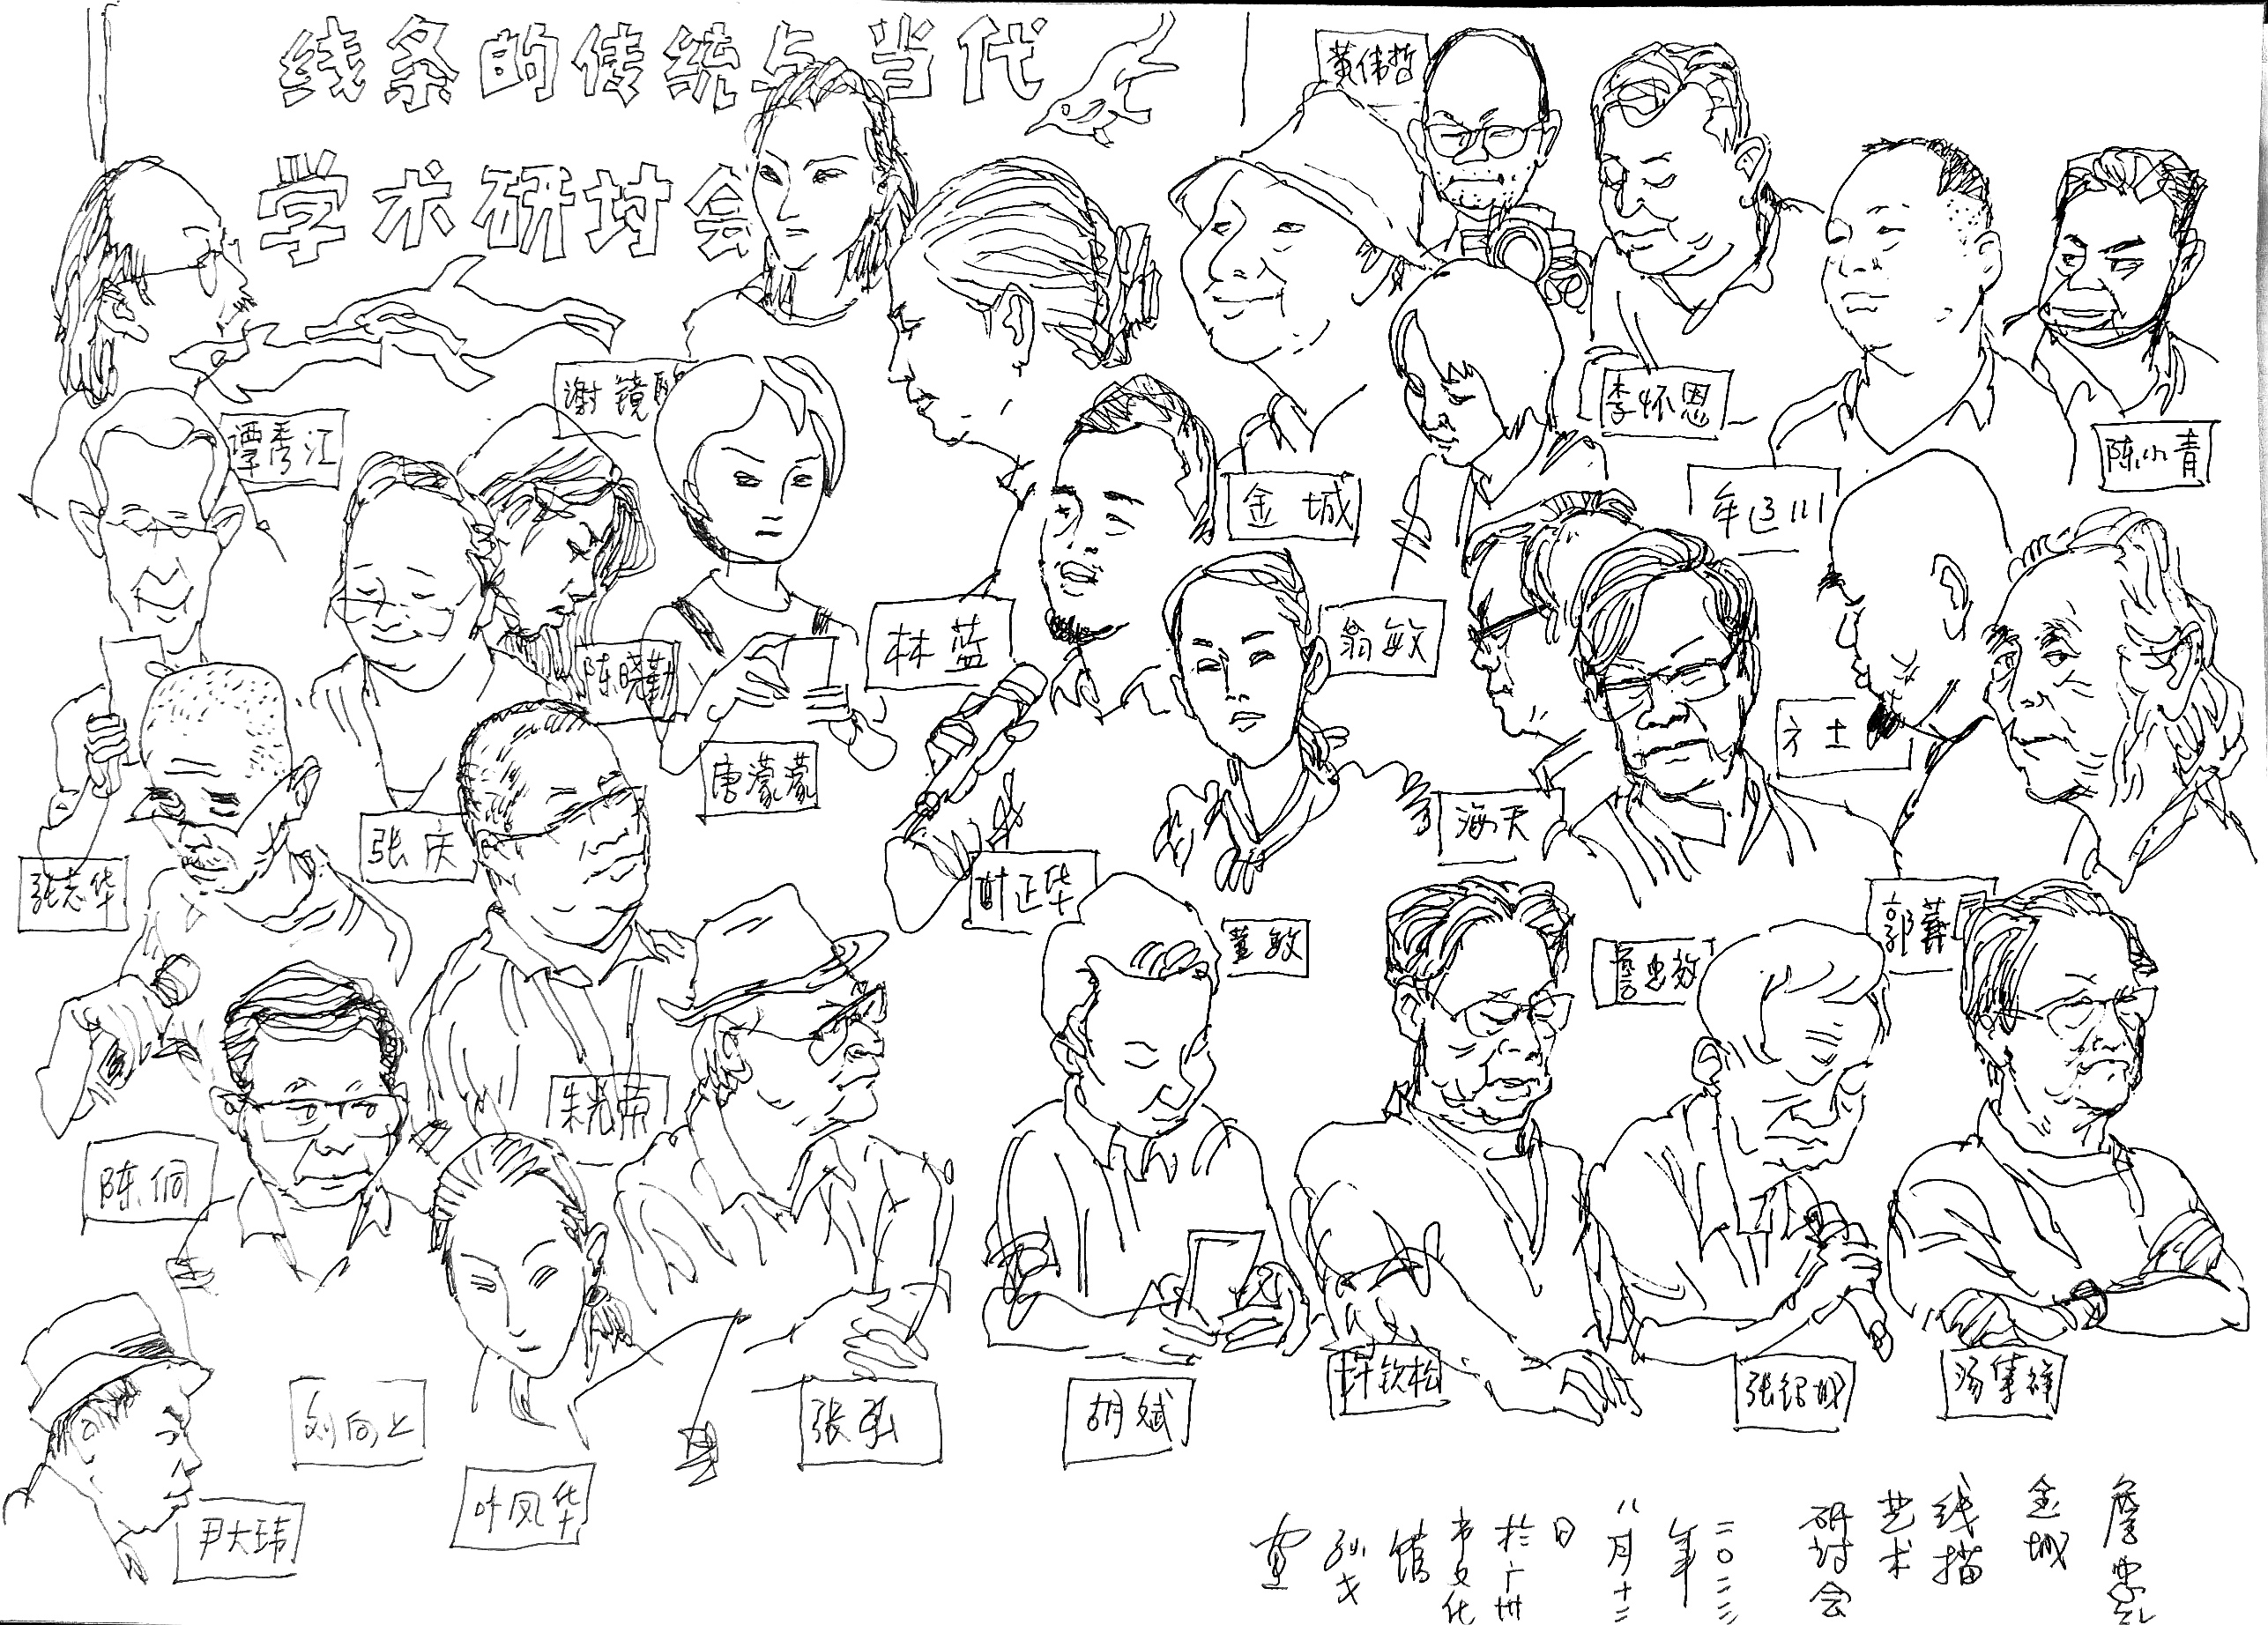 线条的传统与当代
学术研讨会
黄伟哲
谭秀江
谢镜
李怀恩
陈小青
金城
牟辽川
林蓝
翁敏
陈晓勤
唐濛濛
方土
海天
张庆
张志华
叶正华
黄敏
郭莽
詹忠效
朱光荣
陈侗
许钦松
张绍城
汤集祥
张弘
胡斌
刘向上
叶凤华
尹大玮
詹忠效
金城
线描
艺术
研讨会
二〇二三
年
八月十二
日
於广州
市文化
馆
孙戈
画